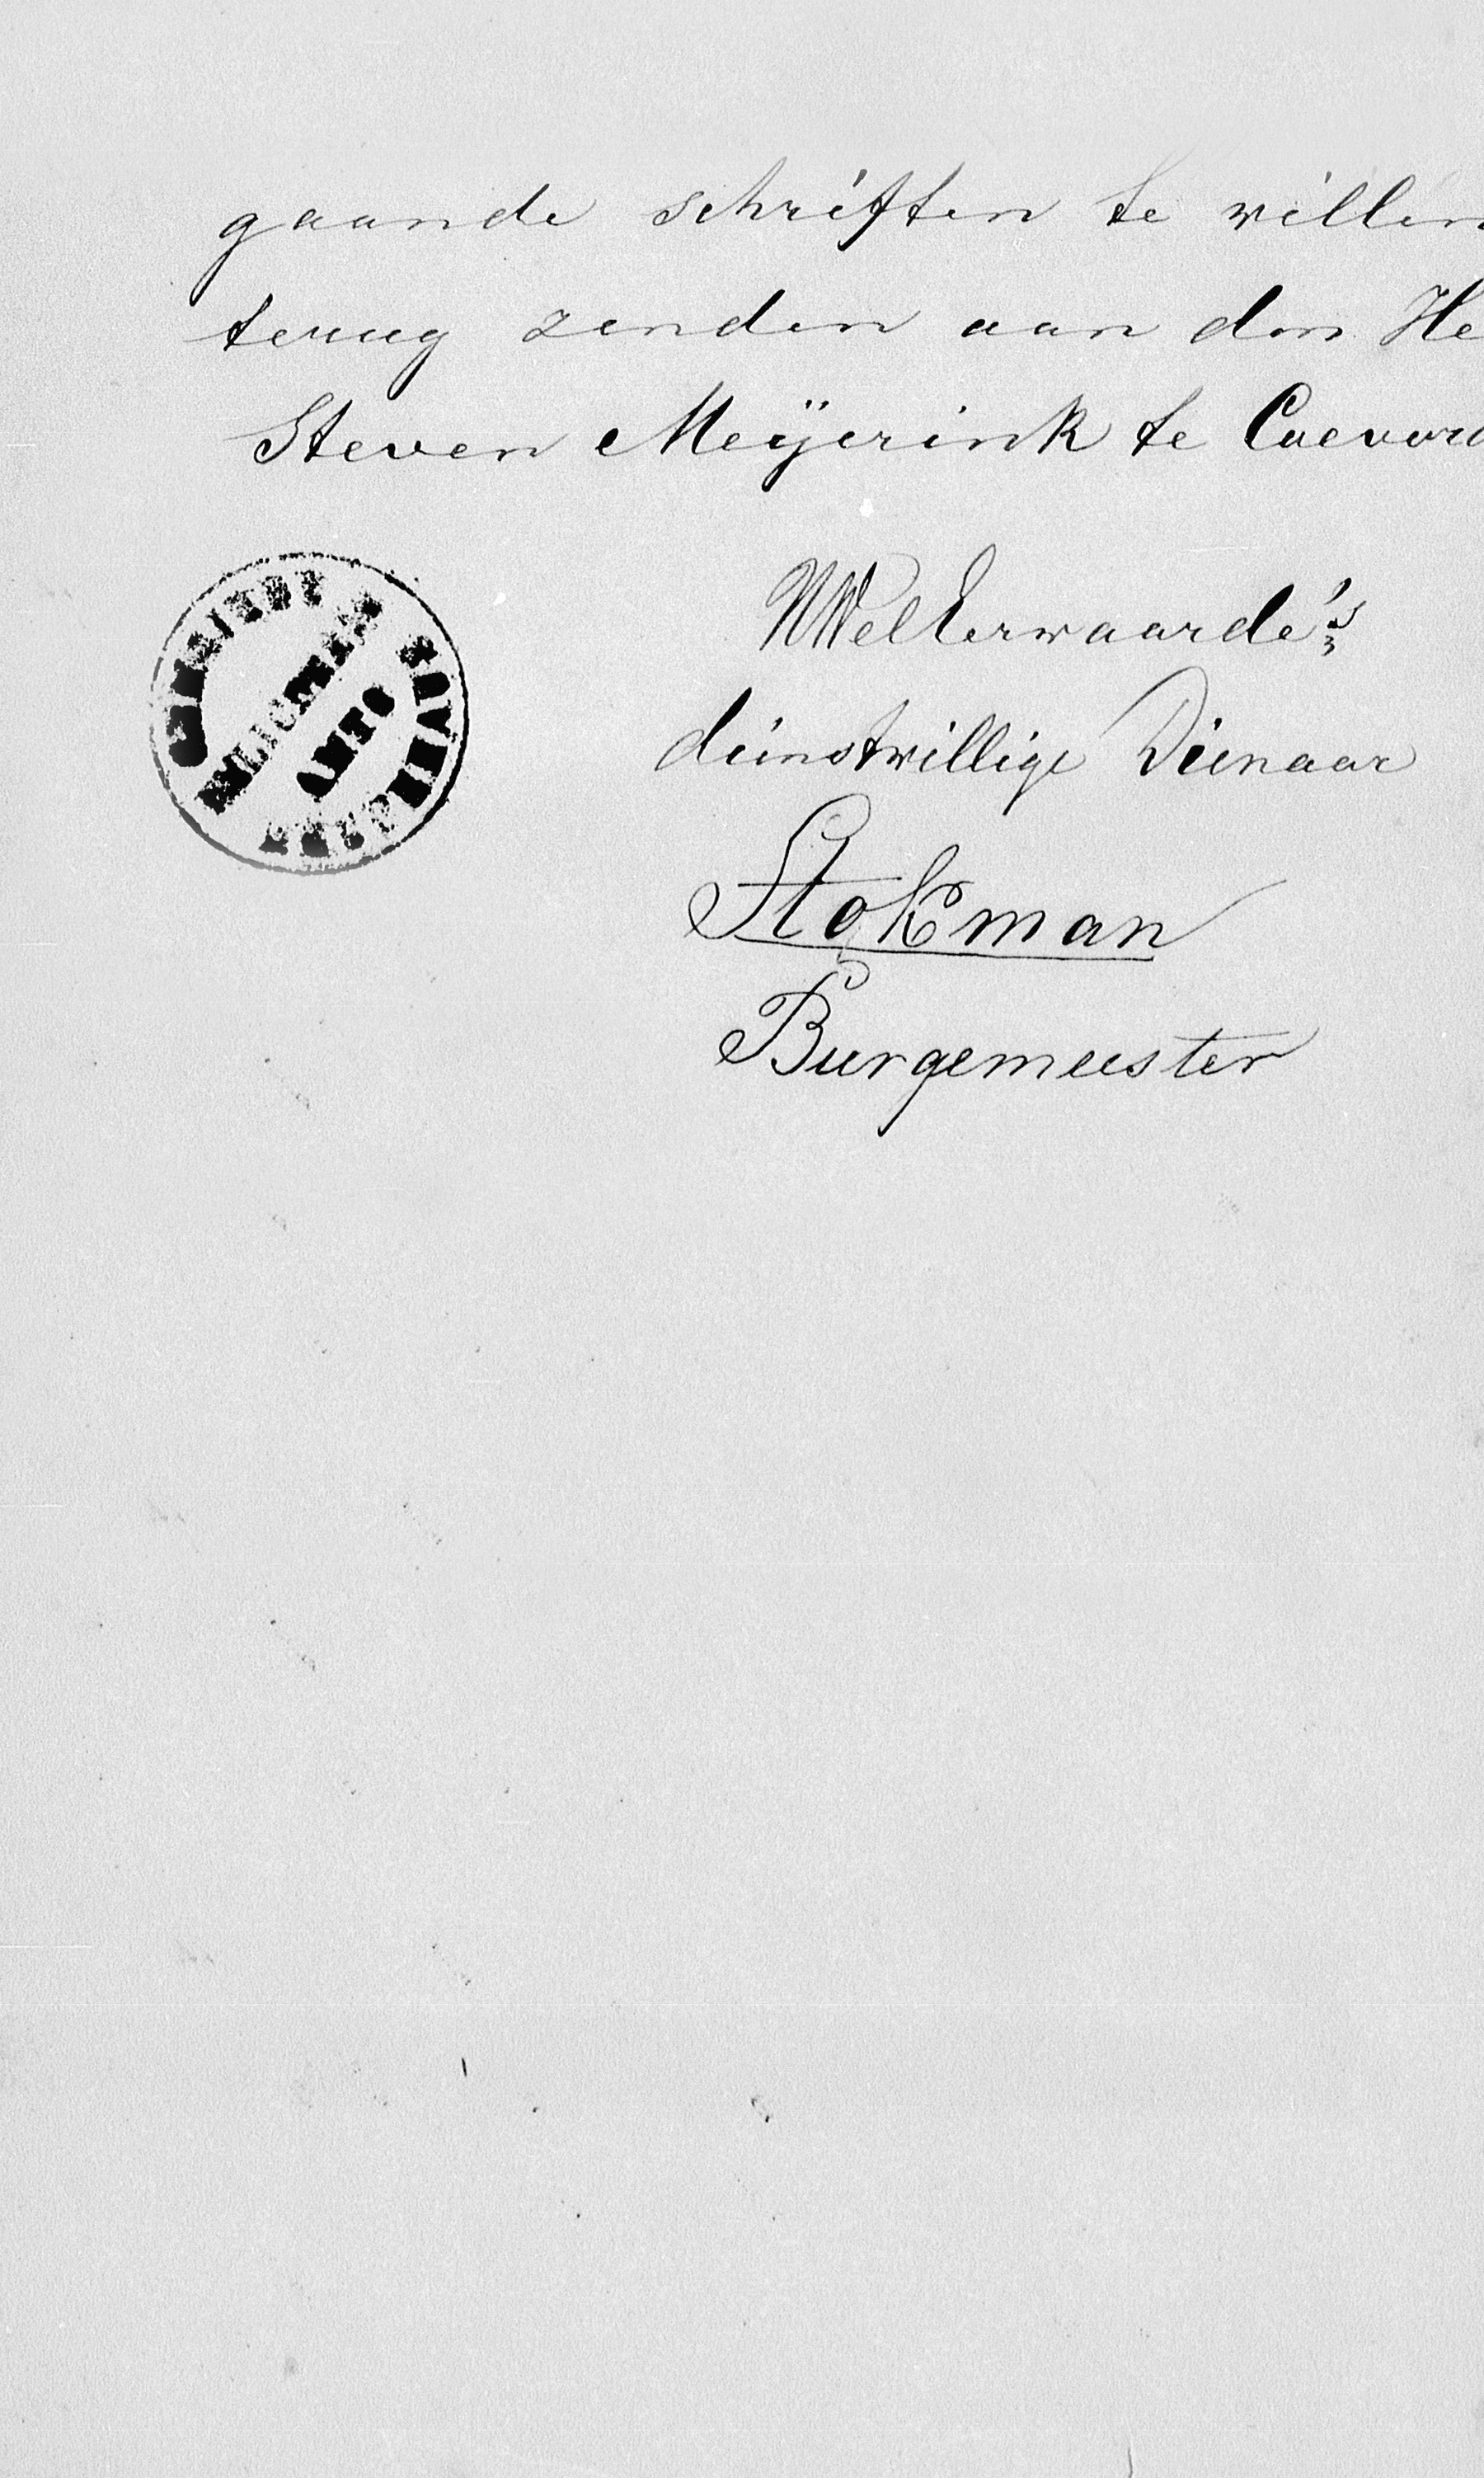 gaande schriften te willen
terug zenden aan den He
Steven Meÿerink te Coevord
UWelEerwaarde's
dienstwillige Dienaar
Stokman
Burgemeester